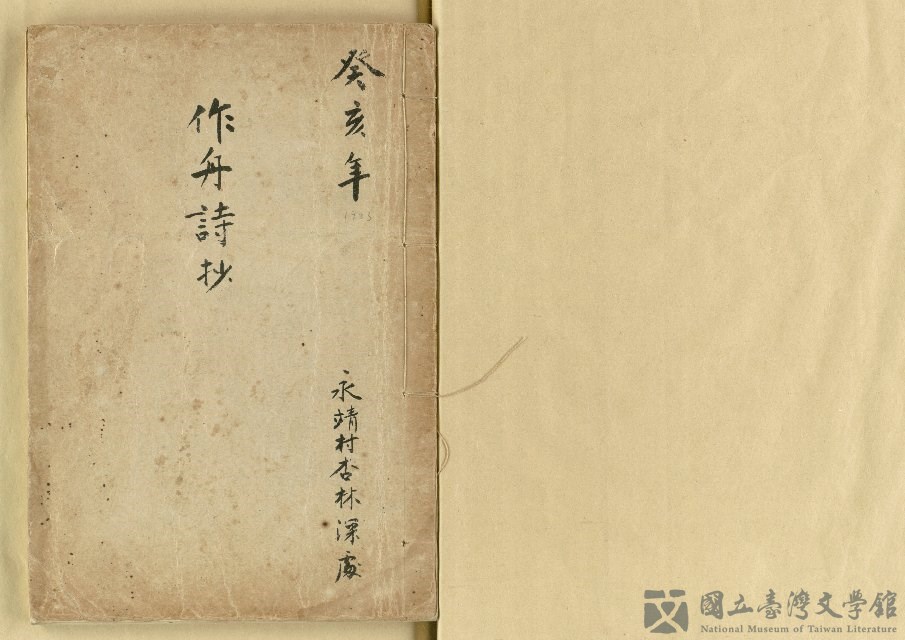 癸亥年
作舟詩抄
永靖村杏林深處
國立臺灣文學館
National Museum of Taiwan Literature